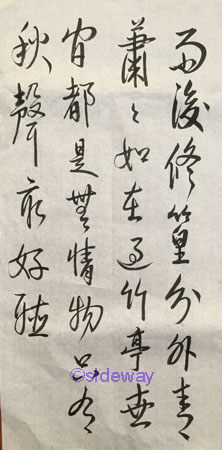 雨後修篁分外青
蕭〻如在過竹亭世
間都是無情物只有
秋聲最好聽
©sideway